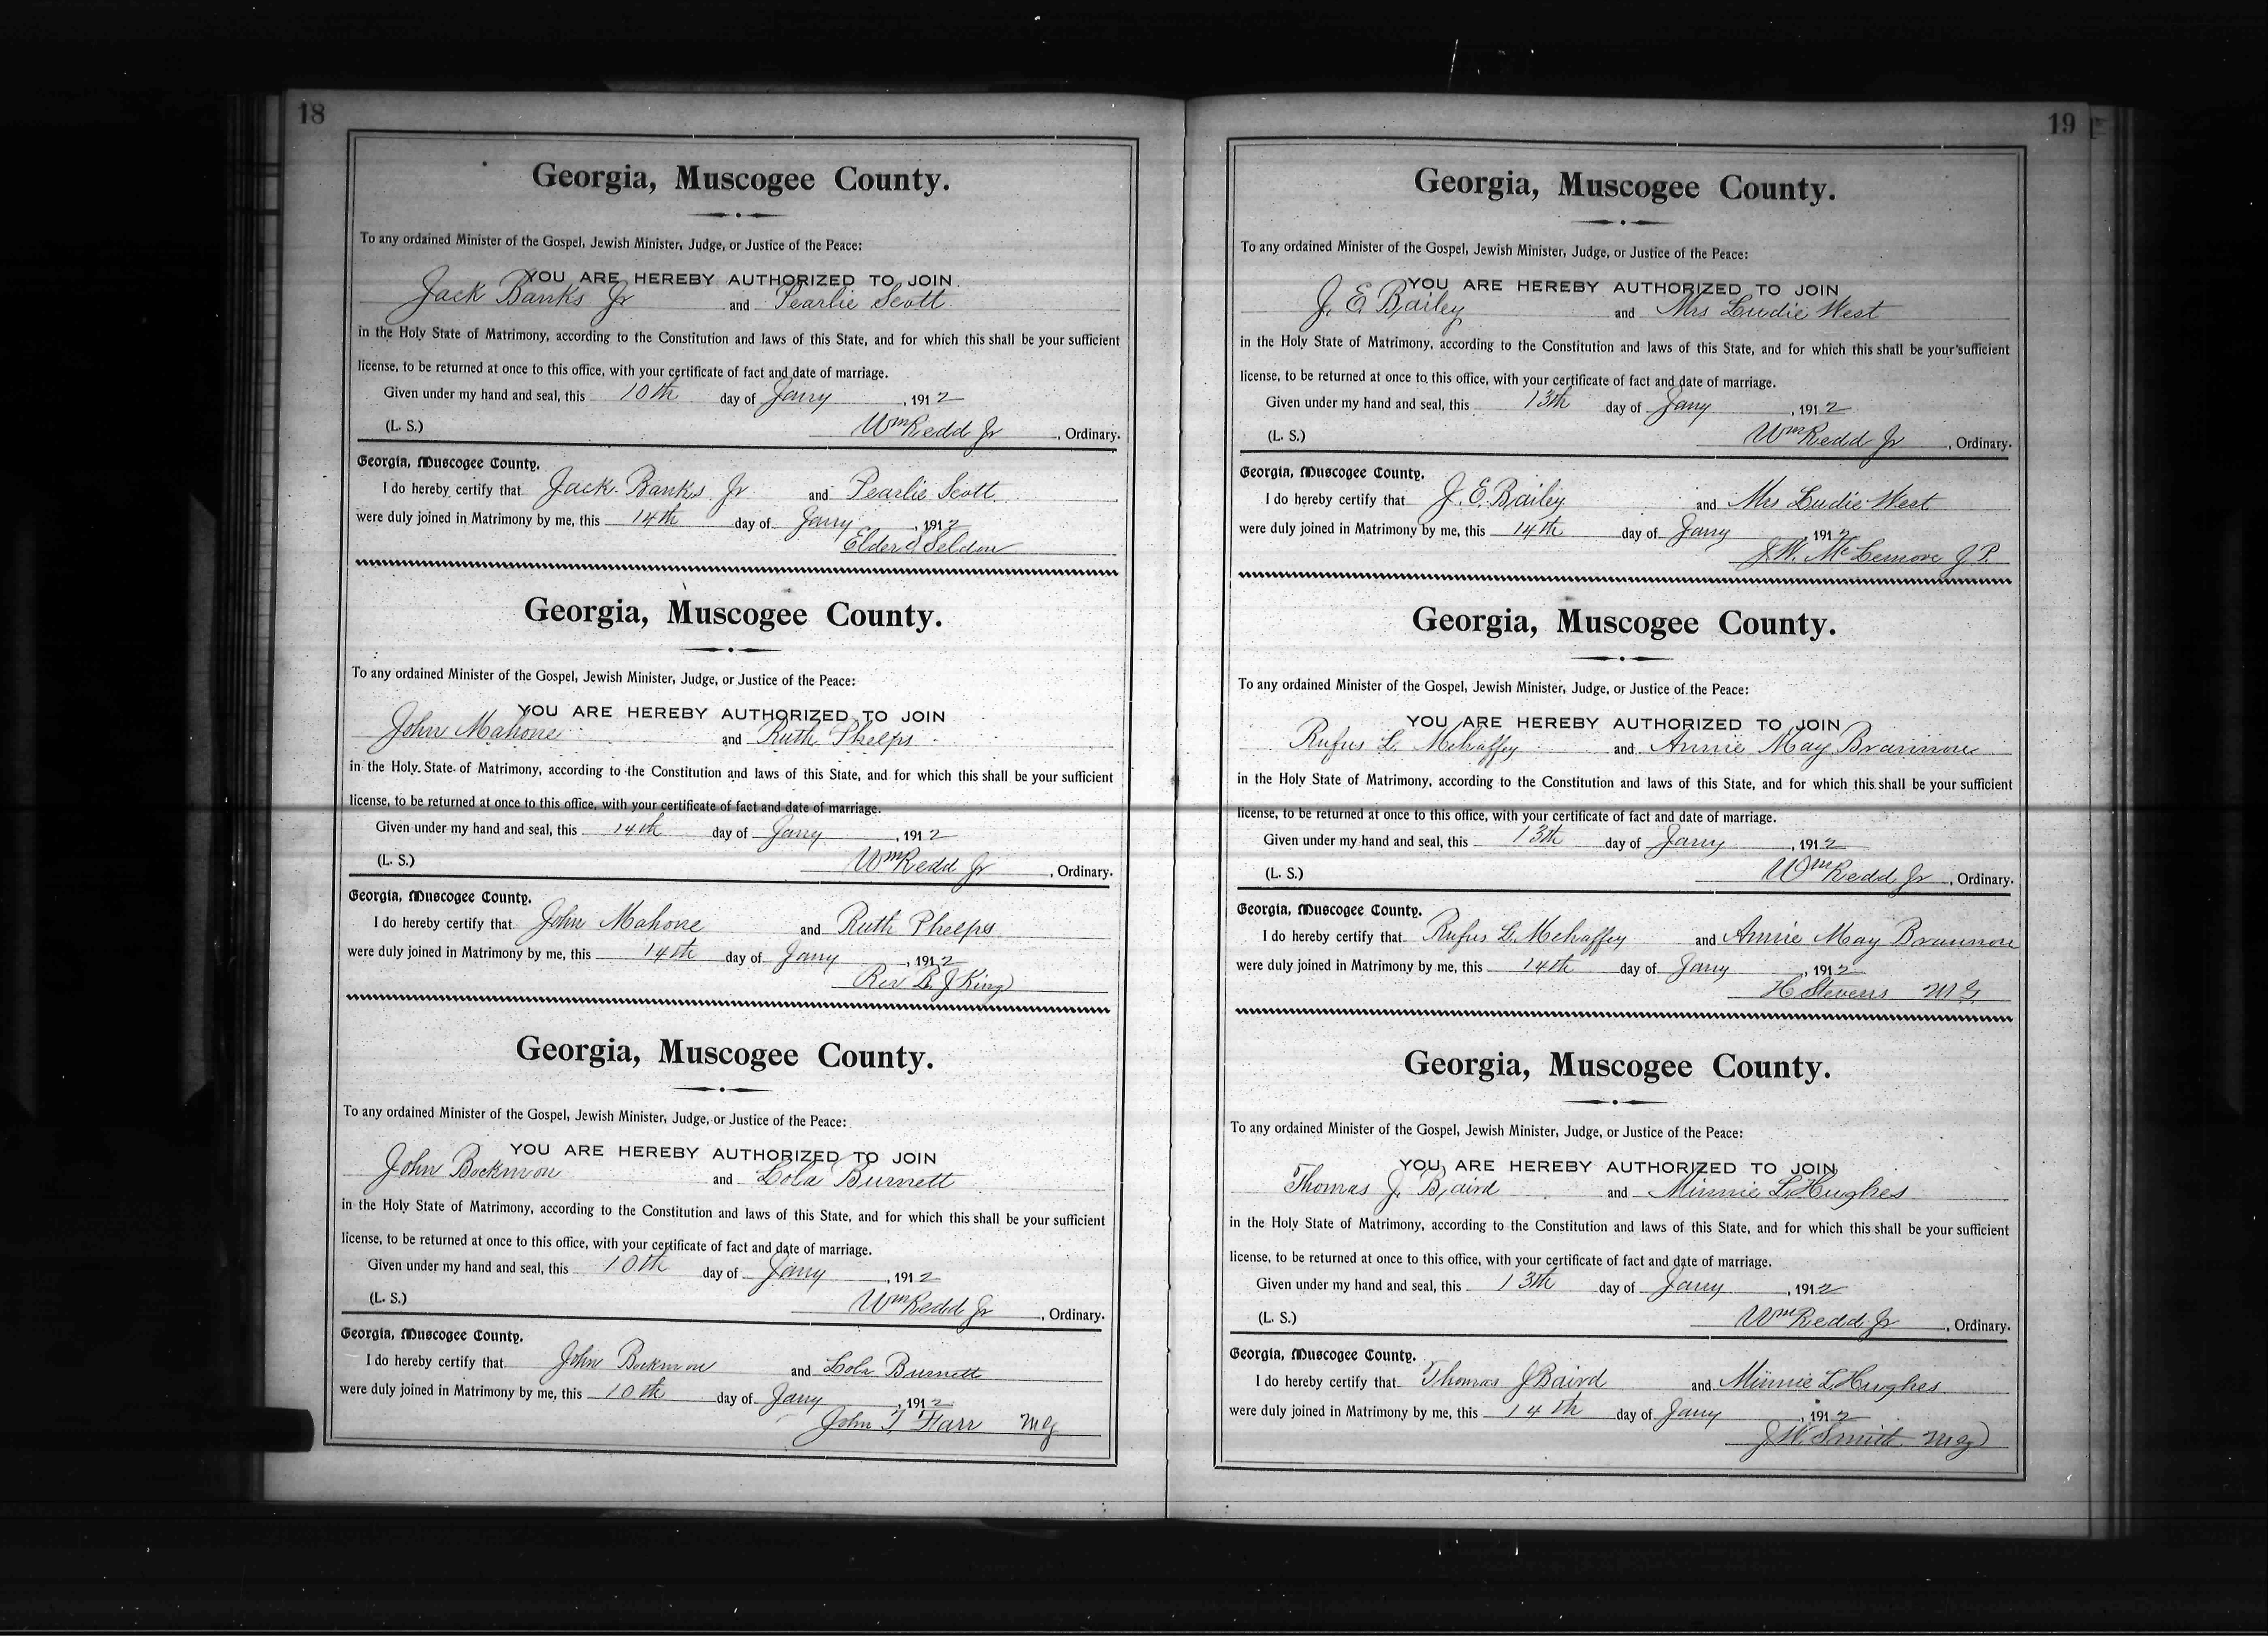 18
Georgia, Muscogee County.
To any ordained Minister of the Gospel, Jewish Minister, Judge, or Justice of the Peace:
YOU ARE HEREBY AUTHORIZED TO JOIN
Jack Banks Jr and Pearlie Scott
in the Holy State of Matrimony, according to the Constitution and laws of this State, and for which this shall be your sufficient
license, to be returned at once to this office, with your certificate of fact and date of marriage.
Given under my hand and seal, this 10th day of Jany, 1912
(L. S.) Wm Redd Jr, Ordinary.
Georgia, Muscogee County.
I do hereby certify that Jack Banks Jr and Pearlie Scott
were duly joined in Matrimony by me, this 14th day of Jany, 1912
Elder Seldon
Georgia, Muscogee County.
To any ordained Minister of the Gospel, Jewish Minister, Judge, or Justice of the Peace:
YOU ARE HEREBY AUTHORIZED TO JOIN
John Mahone and Ruth Phelps
in the Holy State of Matrimony, according to the Constitution and laws of this State, and for which this shall be your sufficient
license, to be returned at once to this office, with your certificate of fact and date of marriage.
Given under my hand and seal, this 14th day of Jany, 1912
(L. S.) Wm Redd Jr, Ordinary.
Georgia, Muscogee County.
I do hereby certify that John Mahone and Ruth Phelps
were duly joined in Matrimony by me, this 14th day of Jany, 1912
Rev B. J King
Georgia, Muscogee County.
To any ordained Minister of the Gospel, Jewish Minister, Judge, or Justice of the Peace:
YOU ARE HEREBY AUTHORIZED TO JOIN
John Bockmon and Lola Burnett
in the Holy State of Matrimony, according to the Constitution and laws of this State, and for which this shall be your sufficient
license, to be returned at once to this office, with your certificate of fact and date of marriage.
Given under my hand and seal, this 10th day of Jany, 1912
(L. S.) Wm Redd Jr, Ordinary.
Georgia, Muscogee County.
I do hereby certify that John Bockmon and Lola Burnett
were duly joined in Matrimony by me, this 10th day of Jany, 1912
John T. Farr MG
19
Georgia, Muscogee County.
To any ordained Minister of the Gospel, Jewish Minister, Judge, or Justice of the Peace:
YOU ARE HEREBY AUTHORIZED TO JOIN
J. E. Bailey and Mrs Ludie West
in the Holy State of Matrimony, according to the Constitution and laws of this State, and for which this shall be your sufficient
license, to be returned at once to this office, with your certificate of fact and date of marriage.
Given under my hand and seal, this 13th day of Jany, 1912
(L. S.) Wm Redd Jr, Ordinary.
Georgia, Muscogee County.
I do hereby certify that J. E. Bailey and Mrs Ludie West
were duly joined in Matrimony by me, this 14th day of Jany, 1912
J. W. McLemore J. P.
Georgia, Muscogee County.
To any ordained Minister of the Gospel, Jewish Minister, Judge, or Justice of the Peace:
YOU ARE HEREBY AUTHORIZED TO JOIN
Rufus L. Mehaffey and Annie May Brannon
in the Holy State of Matrimony, according to the Constitution and laws of this State, and for which this shall be your sufficient
license, to be returned at once to this office, with your certificate of fact and date of marriage.
Given under my hand and seal, this 13th day of Jany, 1912
(L. S.) Wm Redd Jr, Ordinary.
Georgia, Muscogee County.
I do hereby certify that Rufus L. Mehaffey and Annie May Brannon
were duly joined in Matrimony by me, this 14th day of Jany, 1912
H Stevens M G
Georgia, Muscogee County.
To any ordained Minister of the Gospel, Jewish Minister, Judge, or Justice of the Peace:
YOU ARE HEREBY AUTHORIZED TO JOIN
Thomas J. Baird and Minnie L. Hughes
in the Holy State of Matrimony, according to the Constitution and laws of this State, and for which this shall be your sufficient
license, to be returned at once to this office, with your certificate of fact and date of marriage.
Given under my hand and seal, this 13th day of Jany, 1912
(L. S.) Wm Redd Jr, Ordinary.
Georgia, Muscogee County.
I do hereby certify that Thomas J Baird and Minnie L. Hughes
were duly joined in Matrimony by me, this 14th day of Jany, 1912
J. W. Smith MG